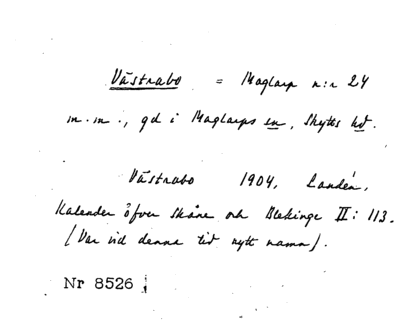 Västrabo = Maglarp n:r 24
m.m., gd i Maglarps sn, Skytts hd.
Västrabo 1904, Landén,
Kalender öfver Skåne och Blekinge II: 113.
(Var vid denna tid nytt namn).
Nr 8526